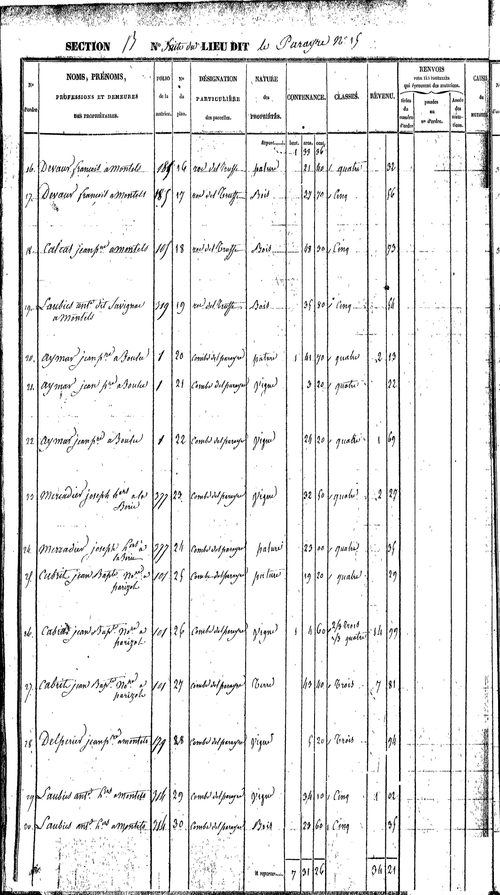 SECTION B N° Suite du LIEU DIT le Parayre N° 15
N° d'ordre
NOMS, PRÉNOMS, PROFESSIONS ET DEMEURES DES PROPRIÉTAIRES.
FOLIO de la matrice.
N° du plan.
DÉSIGNATION PARTICULIÈRE des parcelles.
NATURE des PROPRIÉTÉS.
CONTENANCE.
CLASSES.
REVENU.
RENVOIS
CAUSE
Report hect. ares cent.
1 99 96
16. Devaux françois a montels 185 16 roc del Truffe pature 21 40 quatre 32
17. Devaux françois a montels 185 17 roc del Truffe Bois 29 70 Cinq 56
18. Calcat jean pre a montels 105 18 roc del Truffe Bois 68 30 Cinq 73
19. Laubies ant. dit Savignac 319 19 roc del Truffe Bois 35 80 Cinq 54
a Montels
20. aymar jean pre a Boulu 1 20 Combe del parayre pature 1 61 70 quatre 2 13
21. aymar jean pre a Boulu 1 21 Combe del parayre Vigne 3 20 quatre 22
22. aymar jean pre a Boulu 1 22 Combe del parayre Vigne 24 20 quatre 1 69
23. Mercadier joseph hers a la 377 23 Combe del parayre Vigne 32 50 quatre 2 27
Borie
24. Mercadier joseph hers a 377 24 Combe del parayre pature 23 00 quatre 35
la Borie
25. Cabrit jean Bapt. Nore a 101 25 Combe del parayre pature 19 20 quatre 29
parizot
26. Cabrit jean Bapt. Nore a 101 26 Combe del parayre Vigne 1 4 60 2/3 trois 14 99
parizot 1/3 quatre
27. Cabrit jean Bapt. Nore a 101 27 Combe del parayre Terre 43 40 Trois 7 81
parizot
28 Delperier jean pre a montels 179 28 Combe del parayre Vigne 5 20 Trois 94
29 Laubies ant. hers a montels 314 29 Combe del parayre Vigne 34 10 Cinq 1 02
30. Laubies ant. hers a montels 314 30 Combe del parayre Bois 23 60 Cinq 35
A reporter 7 31 26 34 21